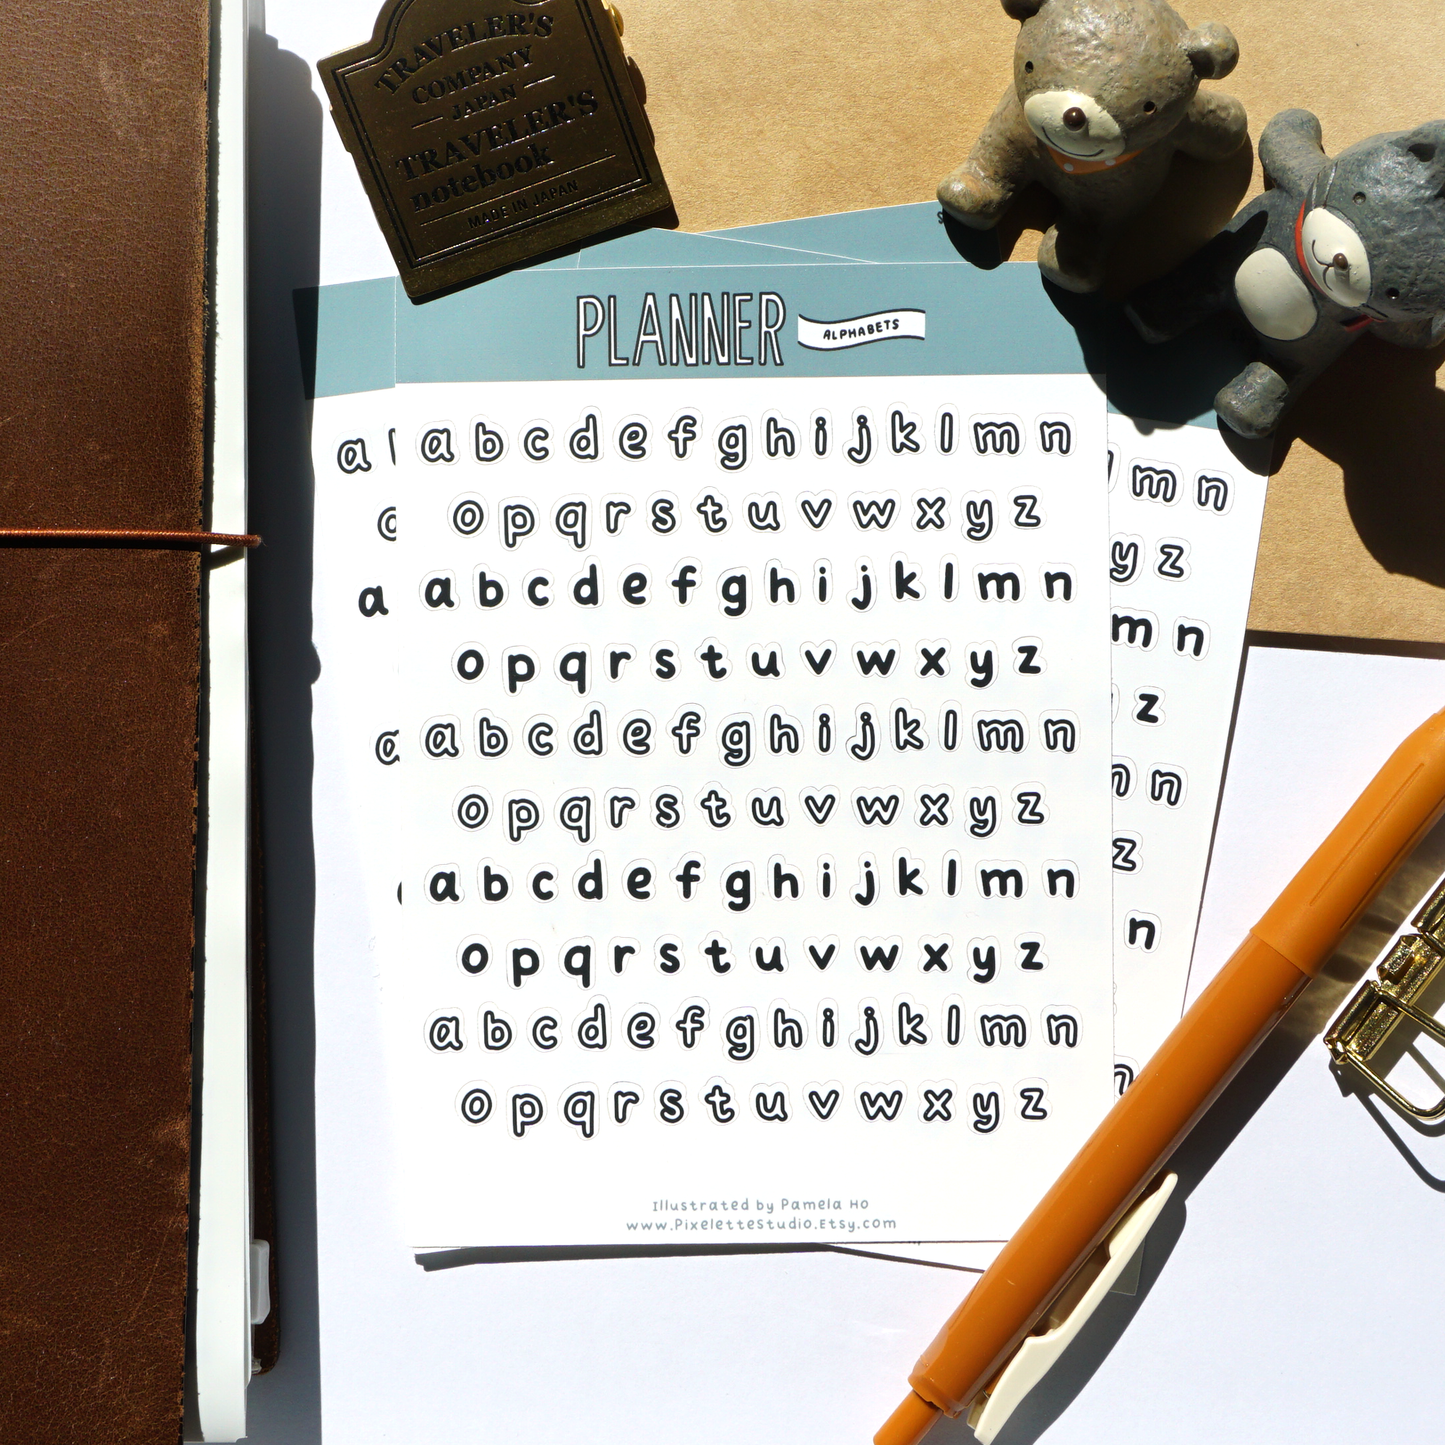 TRAVELER'S
COMPANY
JAPAN
TRAVELER'S
notebook
MADE IN JAPAN
PLANNER ALPHABETS
a b c d e f g h i j k l m n
o p q r s t u v w x y z
a b c d e f g h i j k l m n
o p q r s t u v w x y z
a b c d e f g h i j k l m n
o p q r s t u v w x y z
a b c d e f g h i j k l m n
o p q r s t u v w x y z
a b c d e f g h i j k l m n
o p q r s t u v w x y z
Illustrated by Pamela Ho
www.PixeletteStudio.Etsy.com
a
a
m n
y z
m n
z
n
z
n